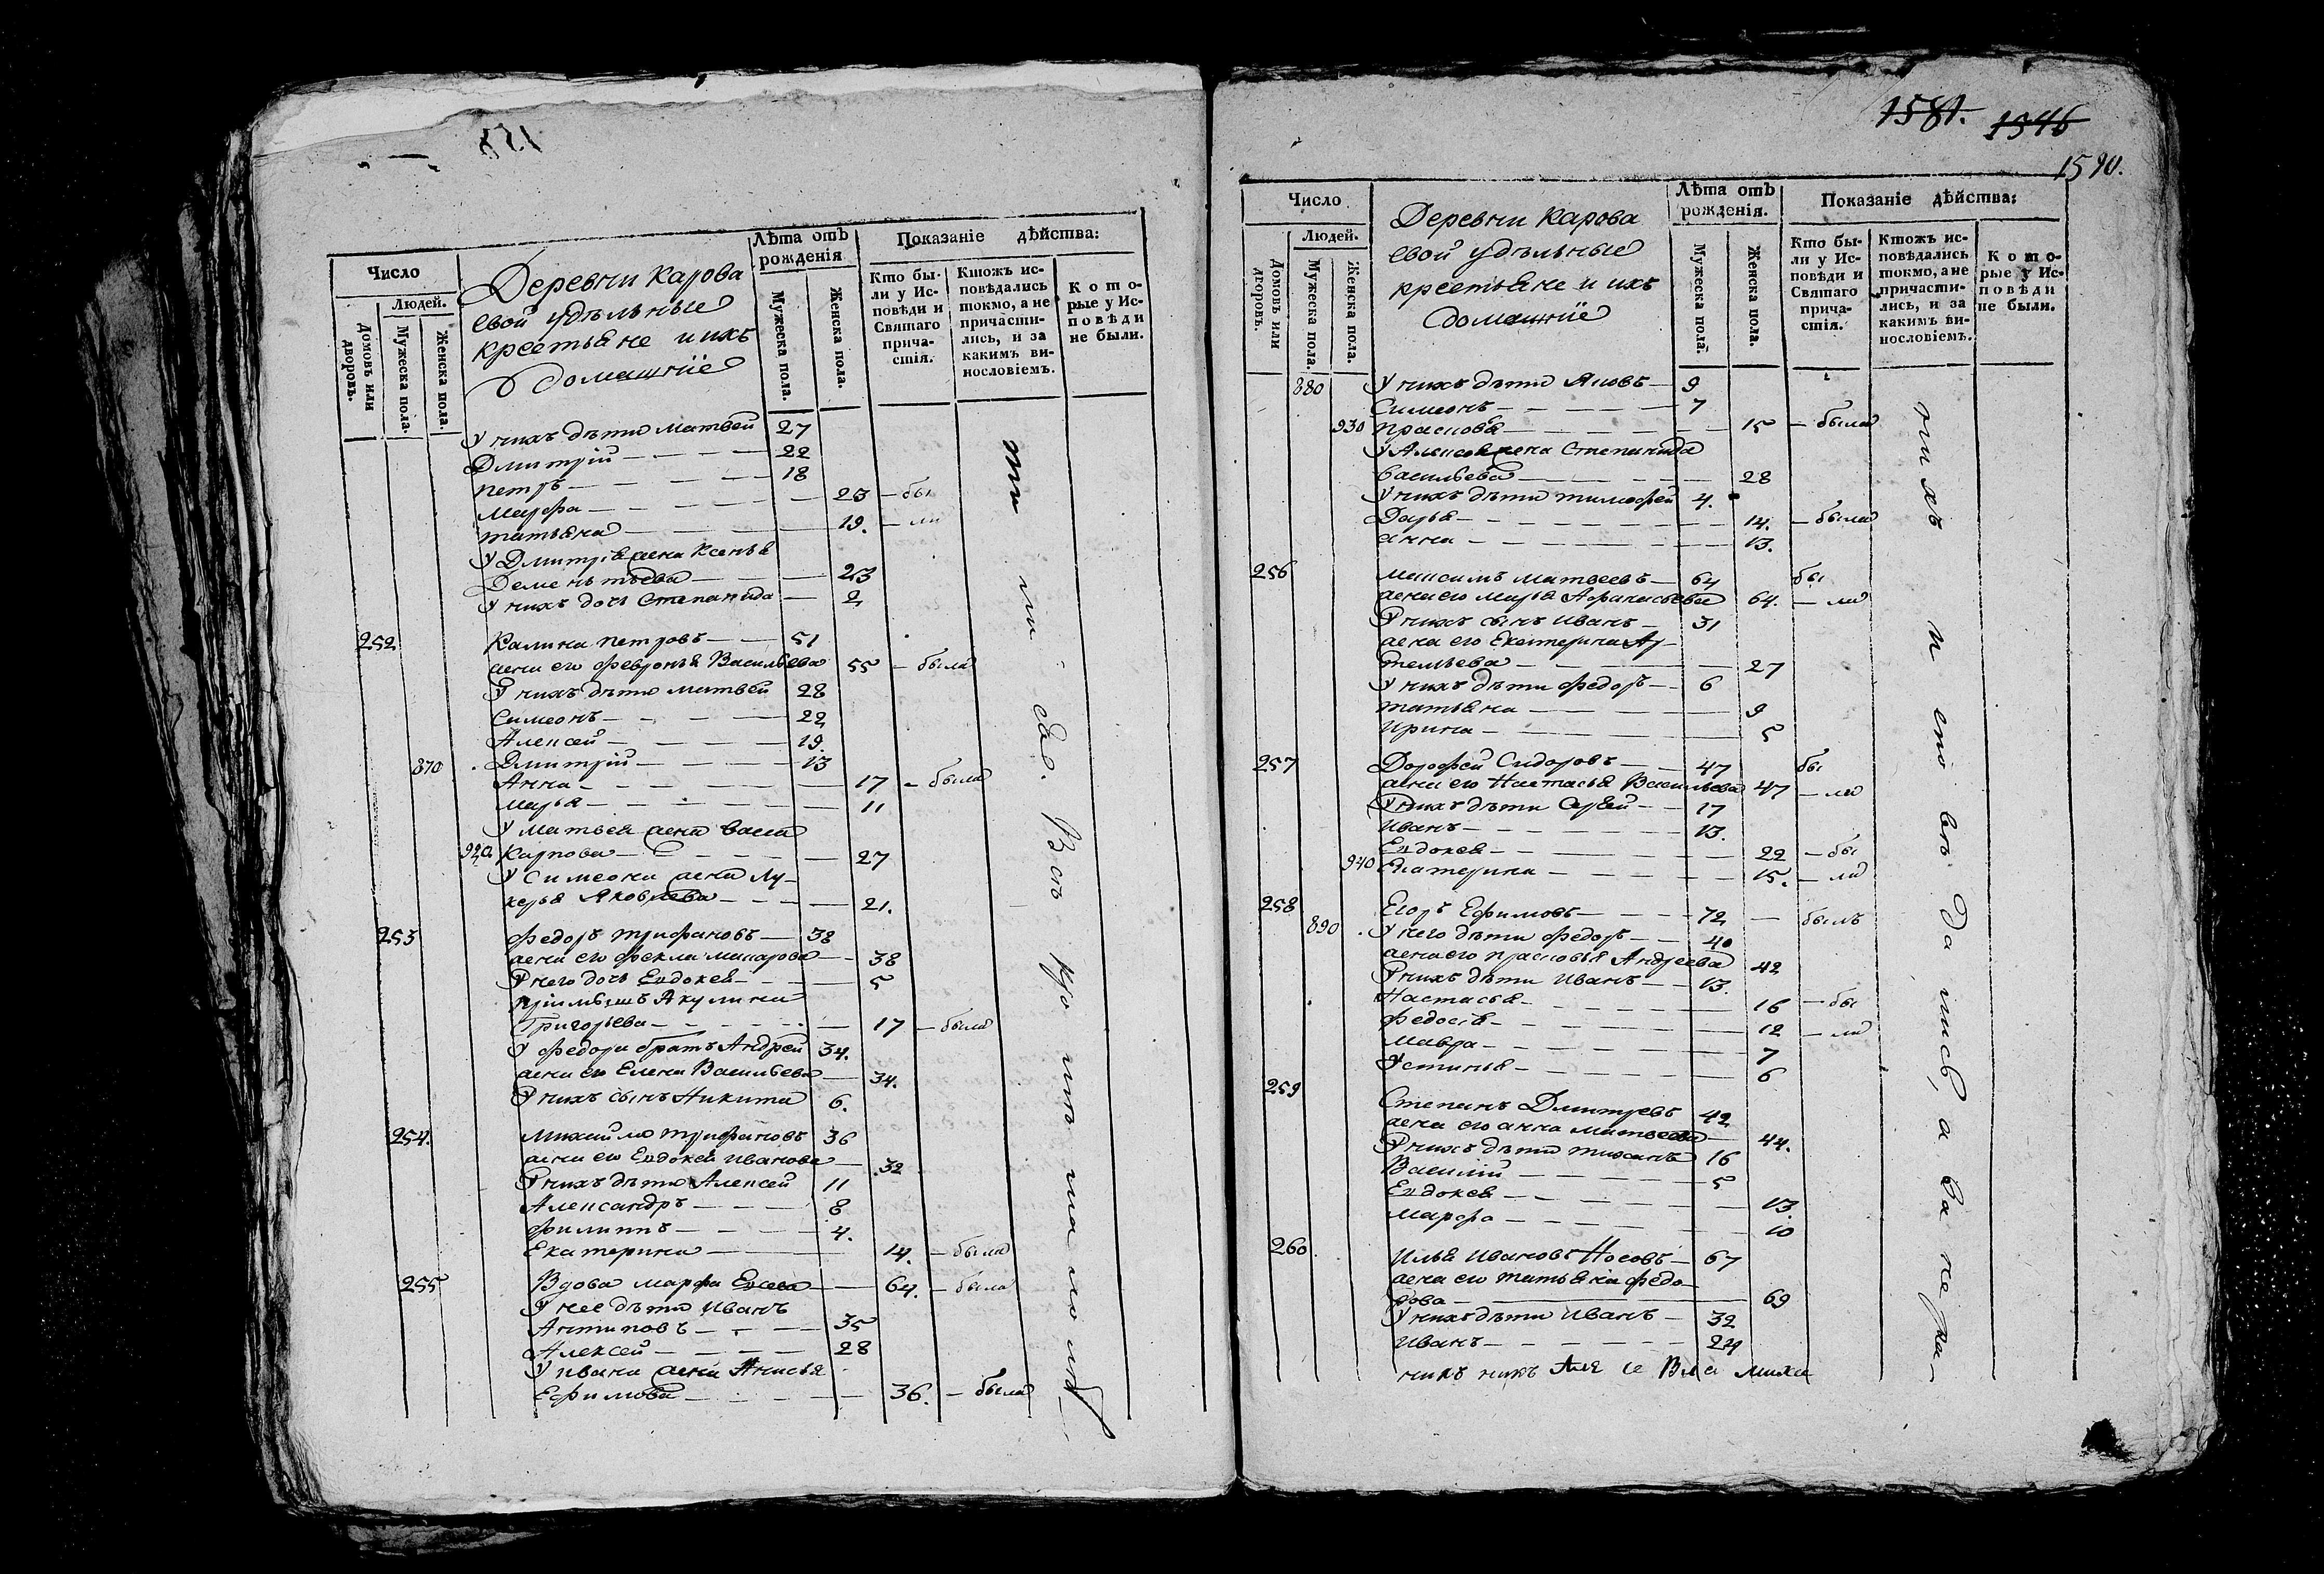 Число
Людей.
Домовъ или дворовъ.
Мужеска пола.
Женска пола.
Деревни Карова
свой удѣльные
крестьяне и ихъ
домашніе
Лѣта отъ
рожденія
Мужеска пола.
Женска пола.
Показаніе дѣйства:
Кто бы-
ли у Ис-
повѣди и
Святаго
прича-
стія.
Ктожъ ис-
повѣдались
токмо, а не
причасти-
лись, и за
какимъ ви-
нословіемъ.
Кото-
рые у Ис-
повѣди
не были.
У нихъ дѣти Матвей 27
Дмитрій 22
Петръ 18
Марфа 23 - бы
Татьяна 19. - ли
У Дмитрія жена Ксенья
Дементьева 23
У нихъ дочь Степанида 2
252 Калина Петровъ 51
жена его Февронья Васильева 55 - была
У нихъ дѣти Матвей 28
Симеонъ 22
Алексей 19.
870 Дмитрій 13
Анна 17 - была
Марья 11
У Матвея жена Васса
920 Карпова 27
У Симеона жена Лу-
керья Яковлева 21.
253 Федоръ Трифановъ 38
жена его Фекла Макарова 38
У него дочь Евдокея 5
Акулина
Григорьева 17 - была
У Федора братъ Андрей 34.
жена его Елена Васильева 34.
У нихъ сынъ Никита 6.
254. Михайло Трифановъ 36
жена его Евдокея Иванова 32
У нихъ дѣти Алексей 11
Александръ 8
Филиппъ 4.
Екатерина 14. - была
255 Вдова Марфа 64. - была
У нее дѣти Иванъ
Антиповъ 35
Алексей 28
У Ивана жена Анисья
Ефимова 36. - была
1581. 1546
1590.
Число
Людей.
Домовъ или дворовъ.
Мужеска пола.
Женска пола.
Деревни Карова
свой удѣльные
крестьяне и ихъ
домашніе
Лѣта отъ
рожденія.
Мужеска пола.
Женска пола.
Показаніе дѣйства:
Кто бы-
ли у Ис-
повѣди и
Святаго
прича-
стія.
Ктожъ ис-
повѣдались
токмо, а не
причасти-
лись, и за
какимъ ви-
нословіемъ.
Кото-
рые у Ис-
повѣди
не были.
880 У нихъ дѣти Яковъ 9
Симеонъ 7
930 Прасковья 15 - была
У Алексея жена Степанида
Васильева 28
У нихъ дѣти Тимофей 4.
Дарья 14. - была
Анна 13.
256 Максимъ Матвеевъ 64 бы
жена его Марья Афанасьева 64. - ли
У нихъ сынъ Иванъ 31
жена его Екатерина Ар-
темьева 27
У нихъ дѣти Федоръ 6
Татьяна 9
Ирина 5
257 Дорофей Сидоровъ 47 бы
жена его Настасья Васильева 47 - ли
У нихъ дѣти Сергей 17
Иванъ 13.
Евдокея 22 - бы
940 Екатерина 15. - ли
258 Егоръ Ефимовъ 72 - былъ
890 У него дѣти Федоръ 40
жена его Прасковья Андреева 42
У нихъ дѣти Иванъ 13.
Настасья 16 - бы
Федосья 12 - ли
Мавра 7
Устинья 6
259 Степанъ Дмитревъ 42
жена его Анна Матвеева 44.
У нихъ дѣти Тиханъ 16
Василій 5
Евдокея 13.
Марфа 10
260 Илья Ивановъ Носовъ 67
жена его Татьяна Федо-
рова 69
У нихъ дѣти Иванъ 32
Иванъ 24